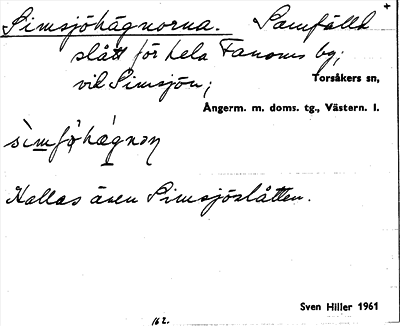 Simsjöhågnorna. Samfälld +
slått för hela Fanoms by;
vid Simsjön; Torsåkers sn,
Ångerm. m. doms. tg., Västern. l.
Kallas även Simsjöslåtten.
Sven Hiller 1961
162.